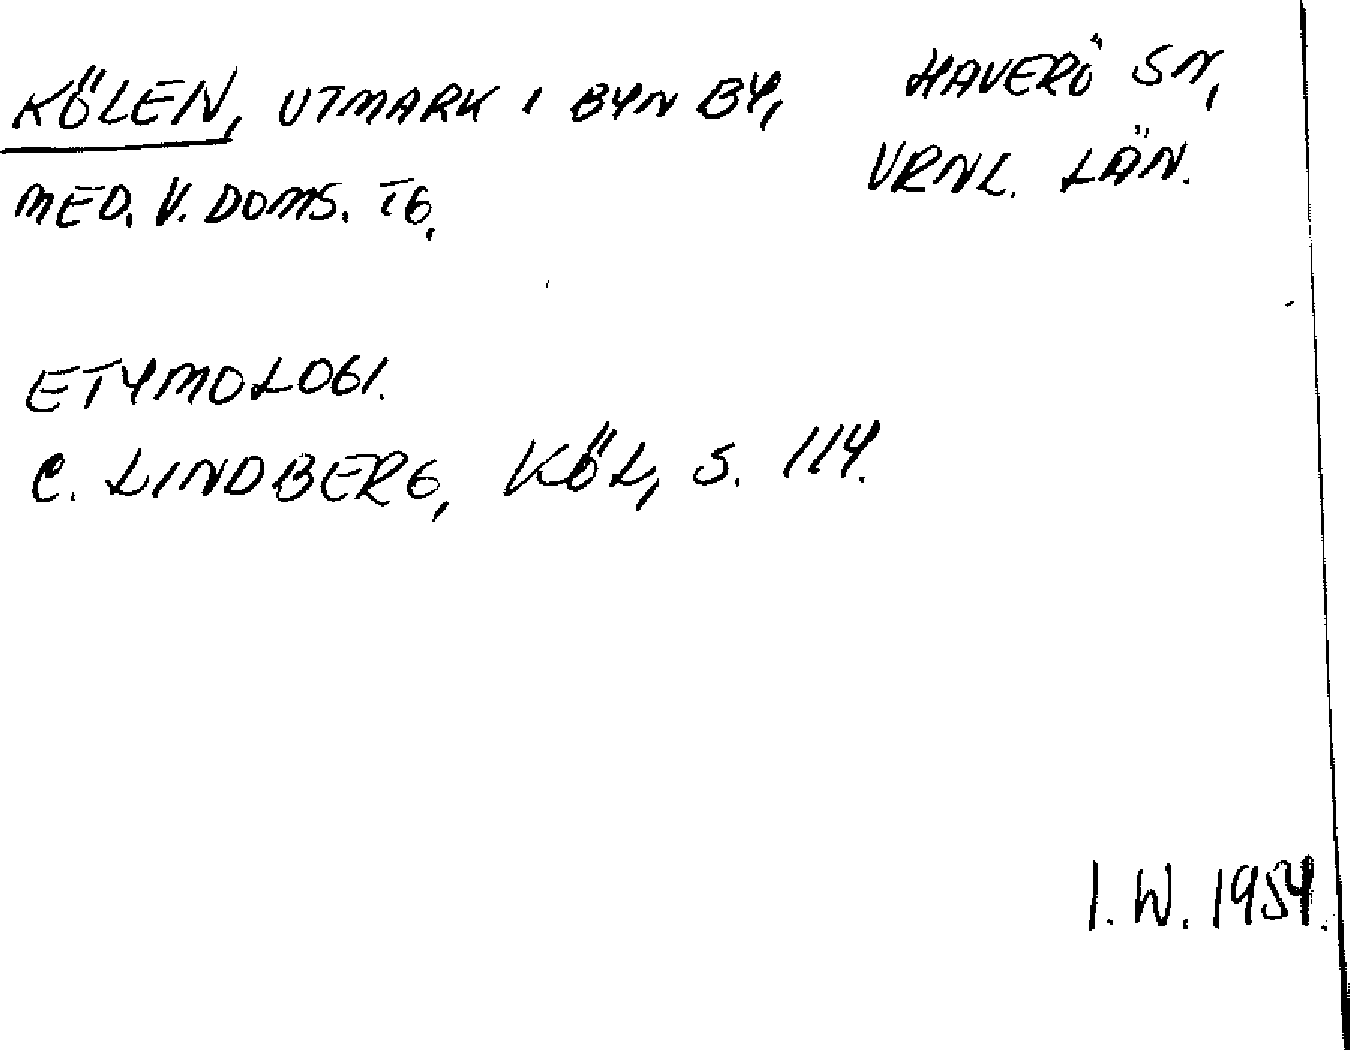 KÖLEN, UTMARK I BYN BY,
MED. V. DOMS. TG,
HAVERÖ SN,
VRNL. LÄN.
ETYMOLOGI.
C. LINDBERG, KÖL, S. 114.
I. W. 1954.